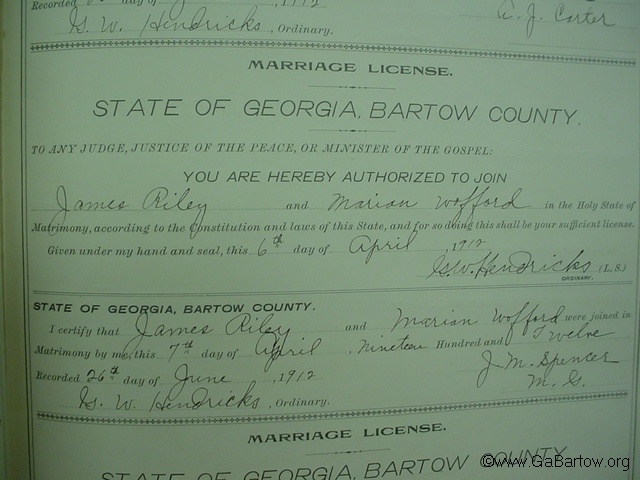 Recorded 6th day of 1912
G. W. Hendricks, Ordinary.
A. J. Carter
MARRIAGE LICENSE.
STATE OF GEORGIA, BARTOW COUNTY.
TO ANY JUDGE, JUSTICE OF THE PEACE, OR MINISTER OF THE GOSPEL:
YOU ARE HEREBY AUTHORIZED TO JOIN
James Riley and Marian Wofford in the Holy State of
Matrimony, according to the Constitution and laws of this State, and for so doing this shall be your sufficient license.
Given under my hand and seal, this 6th day of April, 1912
G. W. Hendricks (L. S.)
ORDINARY.
STATE OF GEORGIA, BARTOW COUNTY.
I certify that James Riley and Marian Wofford were joined in
Matrimony by me, this 7th day of April, Nineteen Hundred and Twelve
Recorded 26th day of June, 1912
J. M. Spencer
G. W. Hendricks, Ordinary.
M. G.
MARRIAGE LICENSE.
STATE OF GEORGIA, BARTOW COUNTY.
©www.GaBartow.org